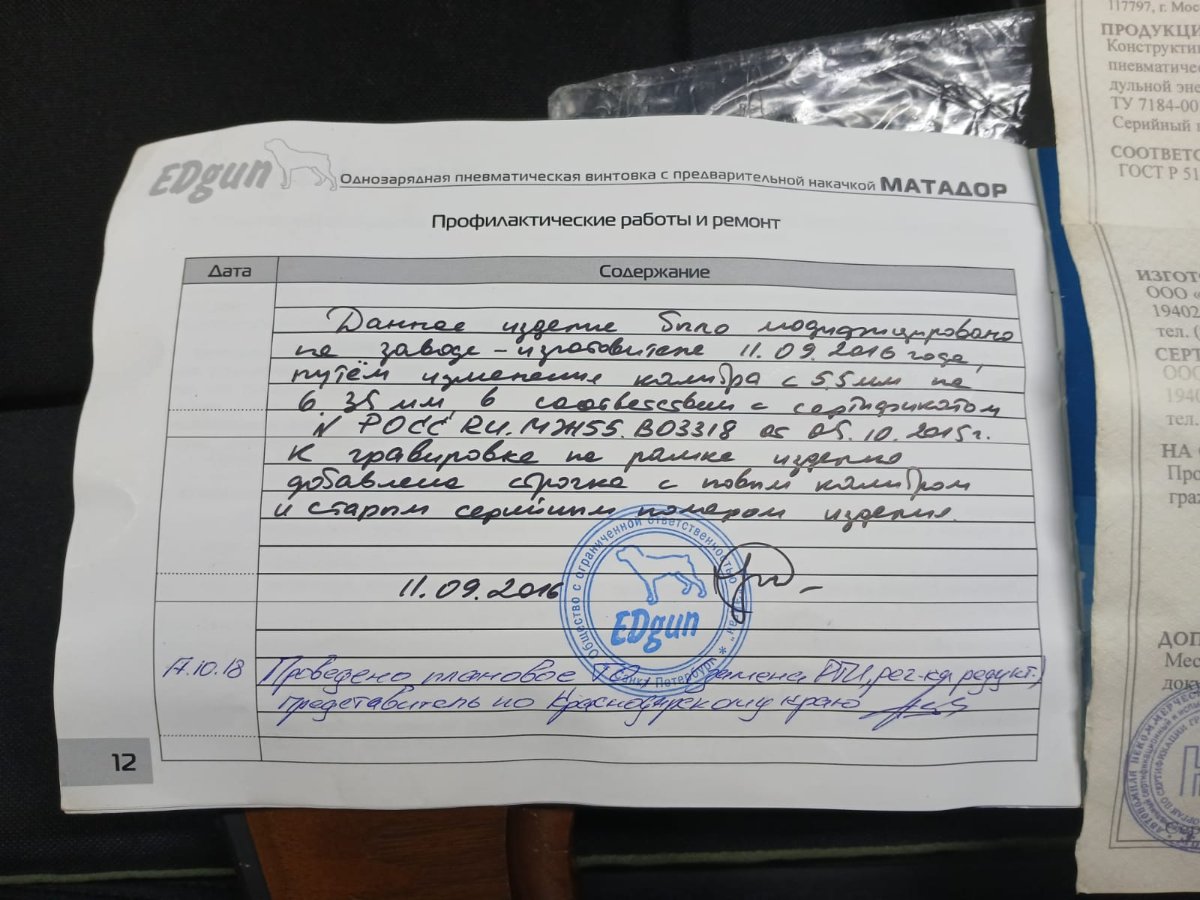 EDgun
Однозарядная пневматическая винтовка с предварительной накачкой МАТАДОР
Профилактические работы и ремонт
Дата Содержание
Данное изделие было модифицировано
на заводе-изготовителе 11.09.2016 года,
путём изменения калибра с 5,5 мм на
6,35 мм в соответствии с сертификатом
N РОСС RU.МЖ55.В03318 от 05.10.2015г.
К гравировке на рамке изделия
добавлена строчка с новым калибром
и старым серийным номером изделия.
11.09.2016
Общество с ограниченной ответственностью
EDgun
Санкт Петербург
17.10.18 Проведено плановое ТО, (замена РТИ, рег-ка редукт.)
Представитель по Краснодарскому краю
12
117797, г. Мос
ПРОДУКЦИ
Конструктив
пневматичес
дульной эне
ТУ 7184-00
Серийный в
СООТВЕТС
ГОСТ Р 51
ИЗГОТ
ООО «
19402
тел. (
СЕРТ
ООО
1940
тел.
НА
Про
гра
ДОП
Мес
доку
АВТОНОМНАЯ НЕКОММЕРЧЕС